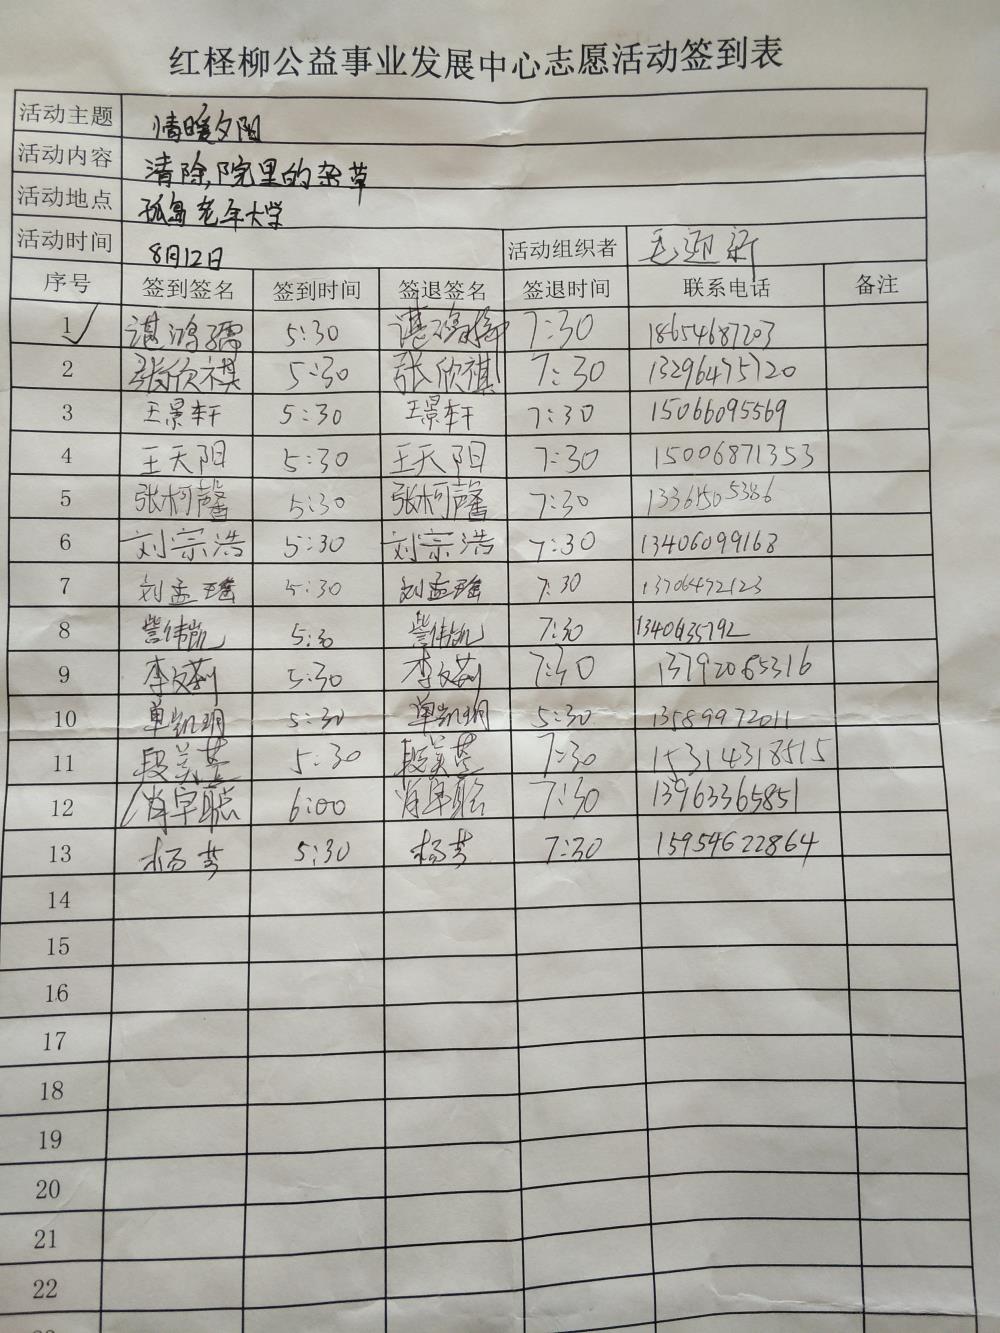 红柽柳公益事业发展中心志愿活动签到表
活动主题 情暖夕阳
活动内容 清除院里的杂草
活动地点 孤岛老年大学
活动时间 8月12日 活动组织者 毛迎新
序号 签到签名 签到时间 签退签名 签退时间 联系电话 备注
1 5:30 7:30 18654687203
2 张欣祺 5:30 张欣祺 7:30 13296475720
3 王景轩 5:30 王景轩 7:30 15066095569
4 王天阳 5:30 王天阳 7:30 15006871353
5 张柯馨 5:30 张柯馨 7:30
6 刘宗浩 5:30 刘宗浩 7:30 13406099168
7 刘孟瑶 5:30 刘孟瑶 7:30 13706472123
8 5:30 7:30
9 李文莉 5:30 李文莉 7:30 13792065316
10 单凯玥 5:30 单凯玥 5:30 13589972011
11 5:30 7:30 15314318515
12 6:00 7:30 13963365851
13 杨芳 5:30 杨芳 7:30 15954622864
14
15
16
17
18
19
20
21
22